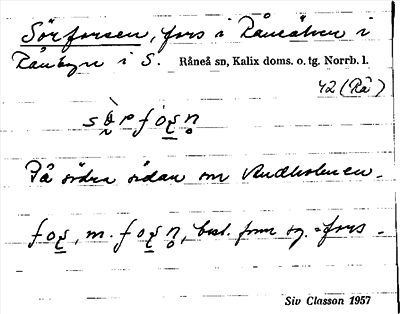 Sörforsen, fors i Råneälven i
Rånbyn i S. Råneå sn, Kalix doms. o. tg. Norrb. l.
42 (Rå)
På södra sidan om Andholmen.
m. best. form sg. = fors.
Siv Classon 1957